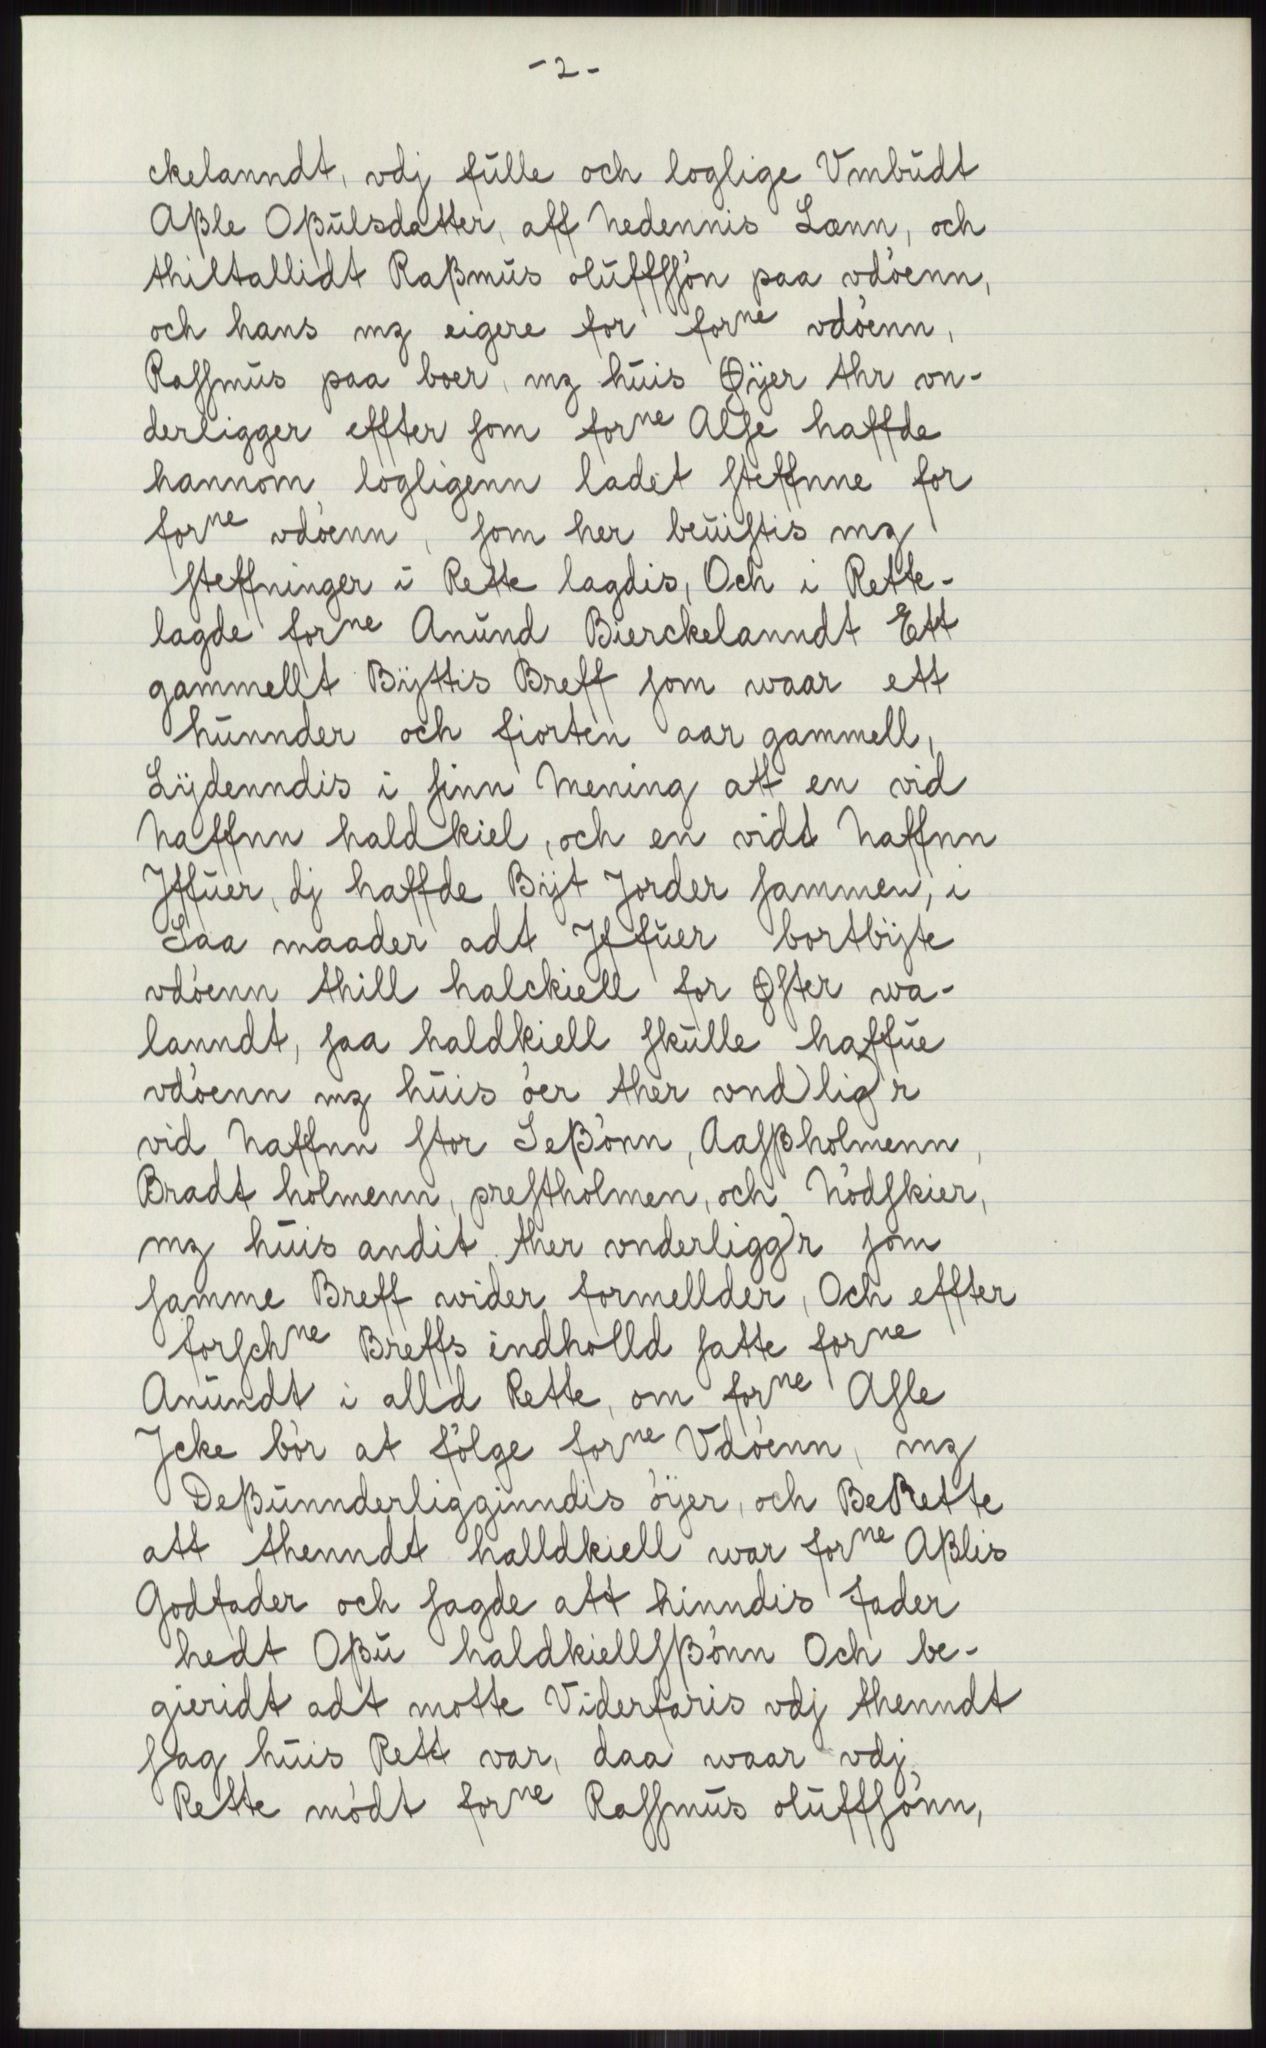 -2-
ckelanndt, vdj fulle och loglige Vmbudt
Aßle Oßulsdatter, aff Nedennis Lænn, och
thiltallidt Raßmus oluffßøn paa vdøenn,
och hans mz eigere for forne vdøenn,
Rassmus paa boer, mz huis Øÿer thr vn-
derligger effter som forne Alse haffde
hannom logligenn ladet steffnne for
forne vdøenn, som her beuistis mz
steffninger i Rette lagdis, Och i Rette-
lagde forne Anund Bierckelanndt Ett
gammellt Bÿttis Breff som waar ett
hunnder och fiorten aar gammell,
Lÿdenndis i sinn Mening att en vid
Naffnn haldkiel, och en vidt Naffnn
Jffuer, dj haffde Bÿt Jorder sammen, i
Saa maader adt Jffuer bortbÿte
vdøenn thill halckiell for Øster wa-
lanndt, saa haldkiell skulle haffue
vdøenn mz huis øer ther vnd)lig)r
vid Naffnn stor Seßønn, Aasßholmenn,
Bradt holmenn, prestholmen, och Nødskier,
mz huis andit ther vnderligg)r som
samme Breff wider formellder, Och effter
forschne Breffs indholld satte forne
Anundt i alld Rette, om forne Asle
Jcke bør at følge forne Vdøenn, mz
Deßunnderligginndis øÿer, och BeRette
att thenndt halldkiell war forne Aßlis
Godfader och sagde att hinndis fader
hedt Oßu haldkiellsßønn Och be-
gieridt adt motte Viderfaris vdj thenndt
sag huis Rett var, daa waar vdj
Rette mødt forne Rassmus oluffsønn,